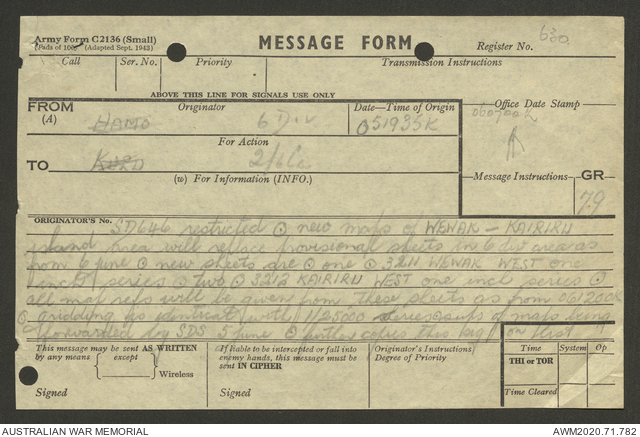 Army Form C2136 (Small)
(Pads of 100) (Adapted Sept. 1943)
MESSAGE FORM
Register No. 630
Call
Ser. No.
Priority
Transmission Instructions
ABOVE THIS LINE FOR SIGNALS USE ONLY
FROM
(A)
Originator
HAMO 6 Div
Date—Time of Origin
051935K
Office Date Stamp
060700K
For Action
TO
2/6 Cc
(w) For Information (INFO.)
Message Instructions
GR
79
ORIGINATOR'S No.
SD646 restricted ⊙ new maps of WEWAK – KAIRIRU
island area will replace provisional sheets in 6 div area as
from 6 june ⊙ new sheets are ⊙ one ⊙ 3211 WEWAK WEST one
inch series ⊙ two ⊙ 3212 KAIRIRU WEST one inch series ⊙
all map refs will be given from these sheets as from 061200K
⊙ gridding is identical with 1/25000 series of maps being
forwarded by SDS june ⊙ further copies
This message may be sent AS WRITTEN
by any means { except } Wireless
Signed
If liable to be intercepted or fall into
enemy hands, this message must be
sent IN CIPHER
Signed
Originator's Instructions
Degree of Priority
Time
System
Op
THI or TOR
Time Cleared
AUSTRALIAN WAR MEMORIAL
AWM2020.71.782